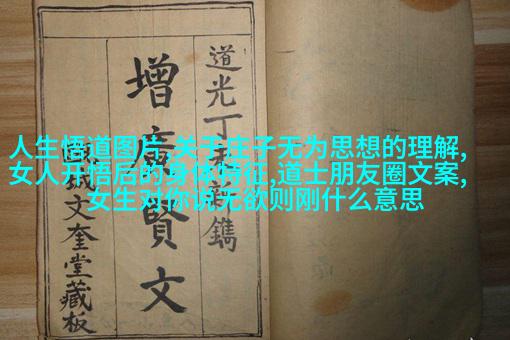 人生悟道图片,关于庄子无为思想的理解,
女人开悟后的身体特征,道士朋友圈文案,
女生对你说无欲则刚什么意思
道光丁新鐫
增廣賢文
城文奎堂藏板